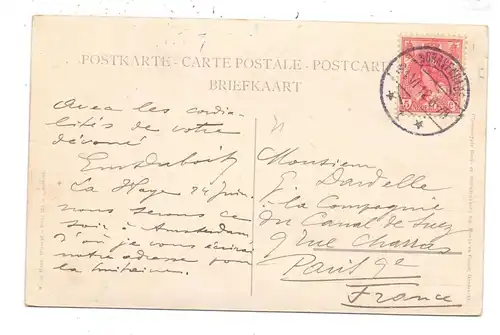 POSTKARTE - CARTE POSTALE - POSTCARD
BRIEFKAART
Avec les cordia-
lités de votre
dévoué
La Haye 24 Juin.
nous serons ce
soir à Amsterdam
d'où je vous écrirai
notre adresse pour
la huitaine.
Monsieur
G. Dardelle
à la Compagnie
du Canal de Suez
9 rue Charras
Paris 9e
France